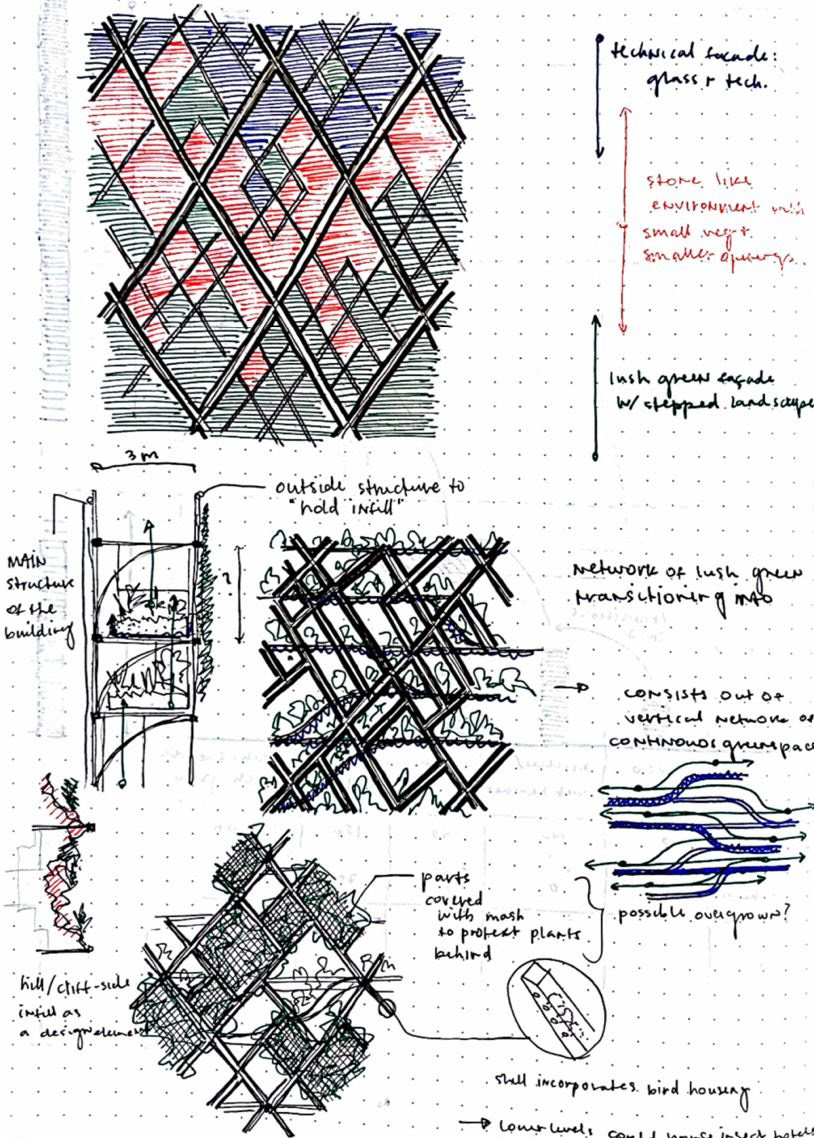 technical façade:
glass + tech.
stone like
environment with
small veg +
smaller openings.
lush green façade
w/ stepped landscape
3 m
outside structure to
"hold infill"
MAIN
structure
of the
building
?
network of lush green
transitioning into
consists out of
vertical network of
continous greenspace
possible overgrown?
parts
covered
with mash
to protect plants
behind
hill/cliff-side
infill as
a design element
shell incorporates bird housing
lower levels could house insect hotels